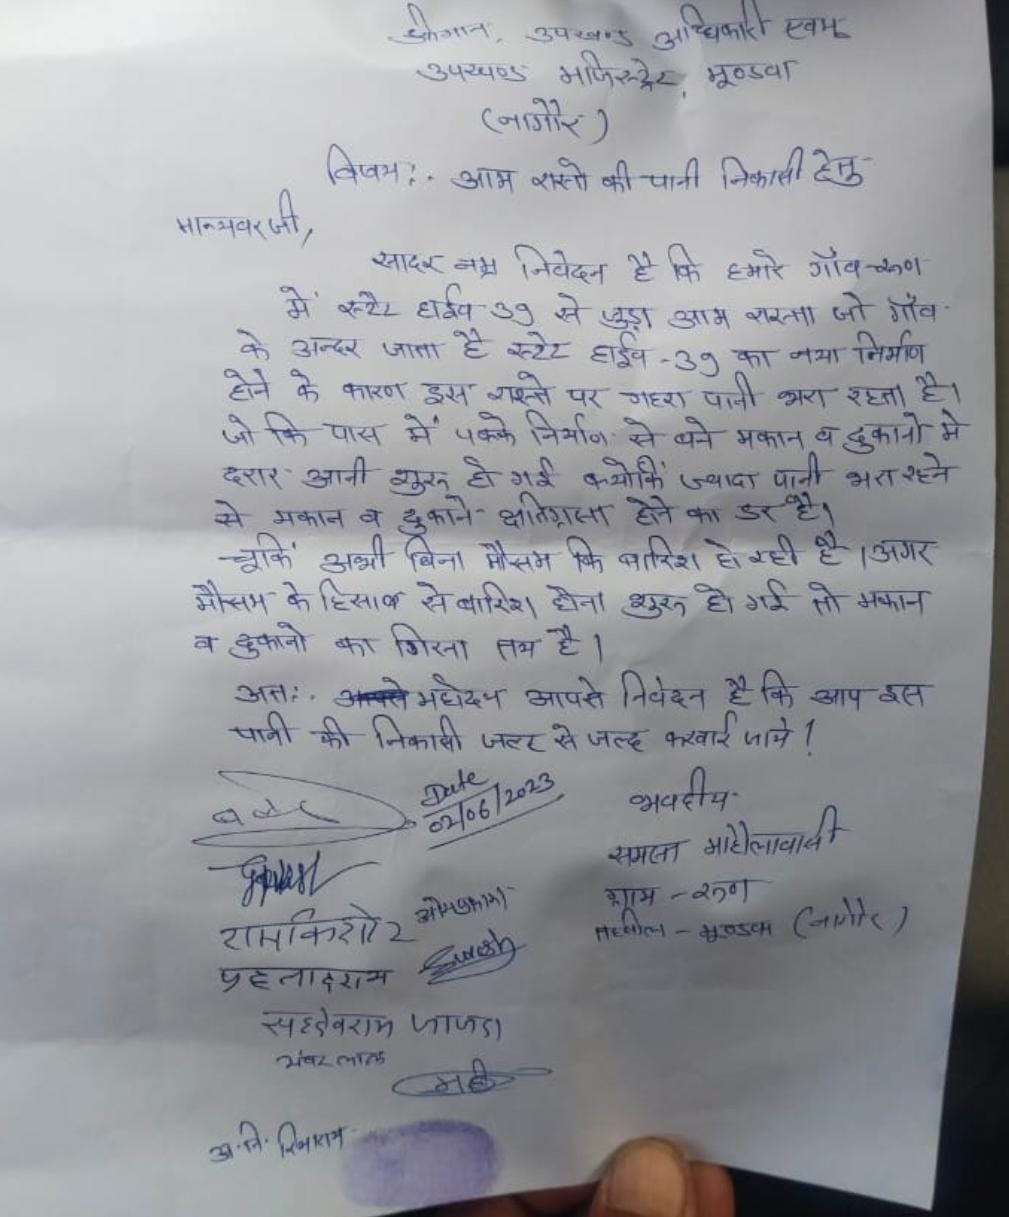 श्रीमान, उपखण्ड अधिकारी एवम
उपखण्ड मजिस्ट्रेट, मूण्डवा
(नागौर)
विषय:. आम रास्ते की पानी निकासी हेतु
मान्यवर जी,
सादर नम्र निवेदन है कि हमारे गाँव-रूण
में स्टेट हाईवे-39 से जुड़ा आम रास्ता जो गाँव
के अन्दर जाता है स्टेट हाईवे-39 का नया निर्माण
होने के कारण इस रास्ते पर गहरा पानी भरा रहता है।
जो कि पास में पक्के निर्माण से बने मकान व दुकानो मे
दरार आनी शुरू हो गई क्योंकि ज्यादा पानी भरा रहने
से मकान व दुकाने क्षतिग्रस्त होने का डर है।
चूकिं अभी बिना मौसम कि बारिश हो रही है। अगर
मौसम के हिसाब से बारिश होना शुरू हो गई तो मकान
व दुकानो का गिरना तय है।
अतः. महोदय आपसे निवेदन है कि आप इस
पानी की निकासी जल्द से जल्द करवाई जाये!
Date
02/06/2023
भवदीय
समस्त मोहल्लावासी
ग्राम - रूण
तहसील - मूण्डवा (नागौर)
रामकिशोर
ओमप्रकाश
प्रहलादराम
Suresh
सहदेवराम जाजड़ा
भंवरलाल
अ. नि.